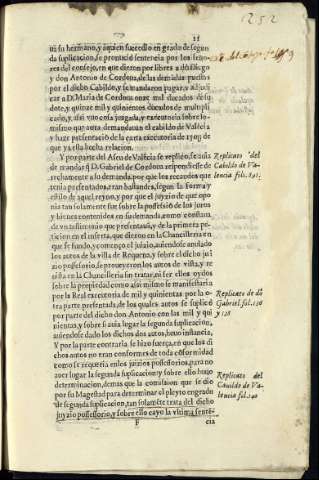 1252
11
ui su hermano, y a quien sucedio en grado de segun
da suplicacion, se pronũciò sentencia por los seño
res del consejo, en que dieron por libres a dõ Diego
y don Antonio de Cordoua, de las demãdas puestas
por el dicho Cabildo, y se mandaron juzgar, y adjudi
car a D. Maria de Cordoua onze mil ducados de
dote, y quatro mil y dozientos ducados de multi
plicacion, y assi vno cosa juzgada, y executoria sobre lo
mismo que aora demandaua el cabildo de Valẽcia
y haze presentacion de la carta executoria de 1505 de
que ya esta hecha relacion.
Y por parte del Aseu de Valẽcia se replicò, se auia
de mandar q̃ D. Gabriel de Cordoua respondiesse de
rechamente a su demanda, por que los recaudos que
tenia presentados, eran bastantes, segun la forma y
estilo de aquel reyno, y por que el juyzio de que opo
nia tan solamente fue sobre la possession de los juros
y bienes contenidos en su demanda, como constaua
de vn testimonio que presentaua, y de la primera pe
ticion en el inserta, que dieron en la Chancilleria en
que se fundo, y començo el juizio, auiendose anulado
los autos de la villa de Requena, y sobre el dicho jui
zio possessorio, se proueyeron los autos de vista, y re
uista en la Chancilleria sin tratar, ni ser ellos oydos
sobre la propiedad como assi mismo se manifestaria
por la Real executoria de mil y quinientas por la o-
tra parte presentada, de los quales autos se suplicò
por parte del dicho don Antonio con las mil y qui
nientas, y sobre si auia lugar la segunda suplicacion,
auiendose dado los dichos dos autos, huuo instancia.
Y por la parte contraria se hizo fuerça, en que los di
chos autos no eran conformes de toda cõformidad
como se requeria en los juizios possessorios, para no
auer lugar la segunda suplicacion y sobre ello huuo
determinacion, demas que la comission que se dio
por su Magestad para determinar el pleyto en grado
de segunda suplicacion, tan solamẽte trata del dicho
juyzio possessorio, y sobre ello cayo la vltima sentẽ-
F
cia
Replicato del
Cabildo de Va-
lencia fol. 191.
Replicato de dõ
Gabriel fol. 130
y 128
Replicato del
Cauildo de Va-
lencia fol. 140